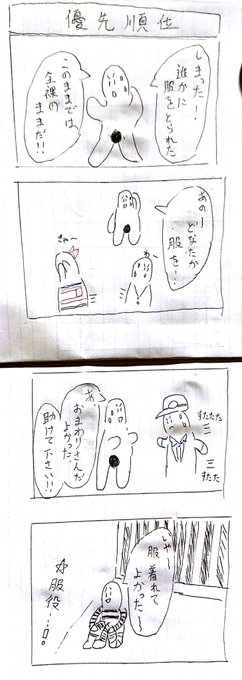 優先順位
しまったー!
誰かに
服をとられた
このままでは
全裸の
ままだ!!
あのー
どなたか
服を…
わー
きゃー
すたたた
すたた
あ、
おまわりさんだ
よかった
助けて下さい!!
いやー
服着れて
よかったー
服役…!